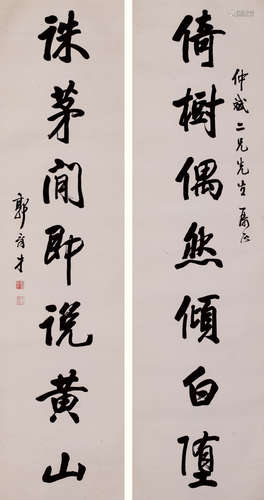 仲斌二兄先生
倚樹偶然傾白墮
誅茅閒即說黃山
郭